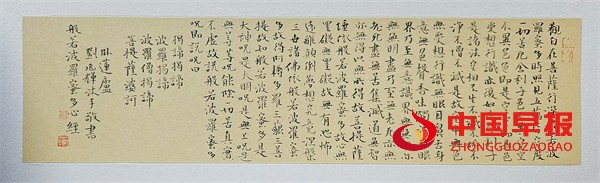 觀自在菩薩行深般若波
羅蜜多時照見五
一切苦厄舍利子色
不異色色即是空
受想行識亦復如
是諸法空相不生不滅
淨不增不減是故
無受想行識無眼耳鼻舌身
意無色聲香味觸
界乃至無意識界無無
無無明盡乃至無老死
老死盡無苦集滅道無智
無得以無所得故菩提薩
埵依般若波羅蜜多故心無
罣礙無罣礙故無有恐怖
遠離顛倒夢想究竟涅槃
三世諸佛依般若波羅蜜
多故得阿耨多羅三藐三菩
提故知般若波羅蜜多是
大神咒是大明咒是無上咒是
無等等咒能除一切苦真實
不虛故說般若波羅蜜多
咒即說咒曰
揭諦揭諦
波羅揭諦
波羅僧揭諦
菩提薩婆訶
卧蓮廬
劉兆輝沐手敬書
般若波羅蜜多心經
中国早报
ZHONGGUOZAOBAO